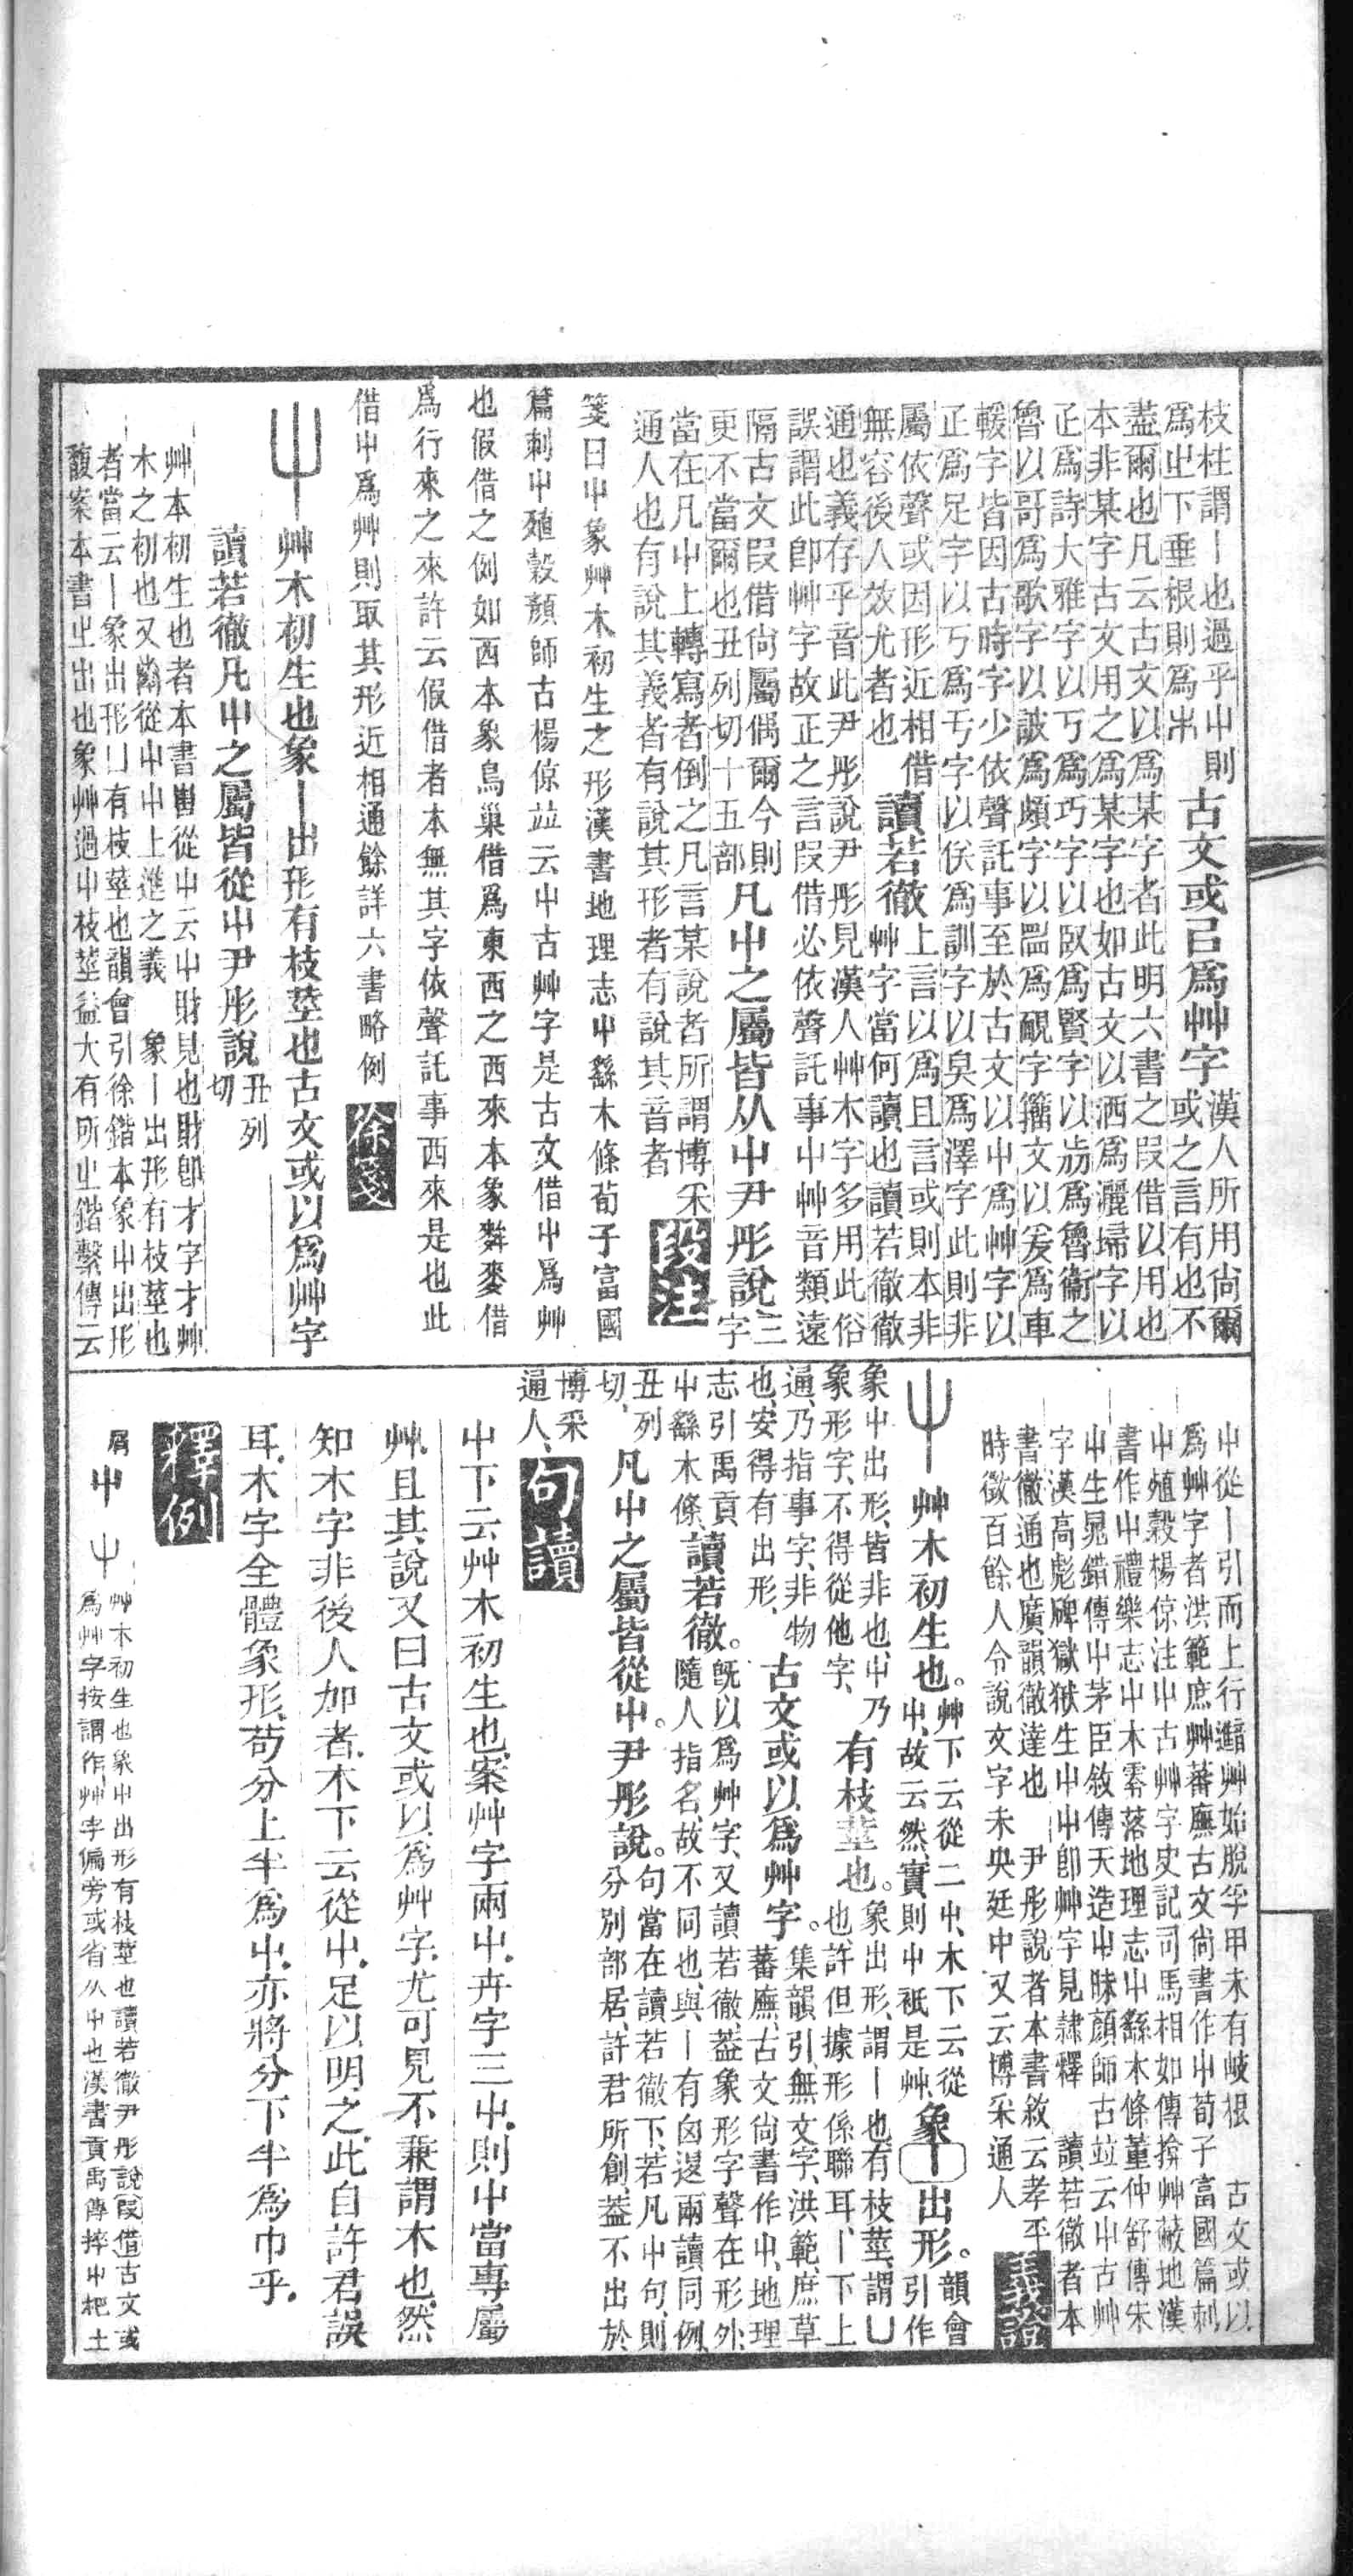 枝柱謂丨也過乎屮則
爲㞢下垂根則爲𡳿
古文或㠯爲艸字
漢人所用尙爾
或之言有也不
盡爾也凡云古文以爲某字者此明六書之叚借以用也
本非某字古文用之爲某字也如古文以洒爲灑埽字以
疋爲詩大雅字以丂爲巧字以臤爲賢字以㫄爲魯衞之
魯以哥爲歌字以詖爲頗字以𥁕爲䩄字籒文以爰爲車
轅字皆因古時字少依聲託事至於古文以屮爲艸字以
疋爲足字以丂爲亏字以㑞爲訓字以臭爲澤字此則非
屬依聲或因形近相借
無容後人效尤者也
讀若徹
上言以爲且言或則本非
艸字當何讀也讀若徹徹
通也義存乎音此尹彤說尹彤見漢人艸木字多用此俗
誤謂此卽艸字故正之言叚借必依聲託事屮艸音類遠
隔古文叚借尙屬偶爾今則
更不當爾也丑列切十五部
凡屮之屬皆从屮尹彤說
三字
當在凡屮上轉寫者倒之凡言某說者所謂博采
通人也有說其義者有說其形者有說其音者
段注
箋曰屮象艸木初生之形漢書地理志屮繇木條荀子富國
篇刺屮殖穀顏師古楊倞竝云屮古艸字是古文借屮爲艸
也假借之例如西本象鳥巢借爲東西之西來本象麰麥借
爲行來之來許云假借者本無其字依聲託事西來是也此
借屮爲艸則取其形近相通餘詳六書略例
徐箋
屮
艸木初生也象丨出形有枝莖也古文或以爲艸字
讀若徹凡屮之屬皆從屮尹彤說
丑列
切
艸本初生也者本書𡴆從屮云屮財見也財卽才字才艸
木之初也又㡀從屮屮上進之義 象丨出形有枝莖也
者當云丨象出形凵有枝莖也韻會引徐鍇本象屮出形
馥案本書㞢出也象艸過屮枝莖益大有所㞢鍇繫傳云
屮從丨引而上行𨗇艸始脫孚甲未有岐根 古文或以
爲艸字者洪範庶艸蕃廡古文尙書作屮荀子富國篇刺
屮殖穀楊倞注屮古艸字史記司馬相如傳揜艸蔽地漢
書作屮禮樂志屮木零落地理志屮繇木條董仲舒傳朱
屮生晁錯傳屮茅臣敘傳天造屮昧顏師古竝云屮古艸
字漢高彪碑獄狱生屮屮卽艸字見隸釋 讀若徹者本
書徹通也廣韻徹達也 尹彤說者本書敘云孝平
時徵百餘人令說文字未央廷中又云博采通人
義證
屮
艸木初生也。
艸下云從二屮、木下云從
屮、故云然、實則屮祇是艸、
象丨出形。
韻會引作
象屮出形、皆非也、屮乃
象形字、不得從他字、
有枝莖也。
象出形、謂丨也、有枝莖、謂凵
也、許但據形係聯耳、丨下上
通、乃指事字、非物
也、安得有出形、
古文或以爲艸字。
集韻引、無文字、洪範、庶草
蕃廡、古文尙書作屮、地理
志引禹貢
屮繇木條、
讀若徹。
旣以爲艸字、又讀若徹、蓋象形字聲在形外、
隨人指名、故不同也、與丨有囟𨓤兩讀同例、
丑列
切、
凡屮之屬皆從屮。尹彤說。
句當在讀若徹下、若凡屮句、則
分別部居、許君所創、蓋不出於
博采
通人、
句讀
屮下云艸木初生也、案艸字兩屮、卉字三屮、則屮當專屬
艸、且其說又曰古文或以爲艸字、尤可見不兼謂木也、然
知木字非後人加者、木下云從屮、足以明之、此自許君誤
耳、木字全體象形、苟分上半爲屮、亦將分下半爲巾乎、
釋例
屑 屮 屮
艸木初生也象屮出形有枝莖也讀若徹尹彤說叚借古文或
爲艸字按謂作艸字偏旁或省从屮也漢書貢禹傳捽屮杷土